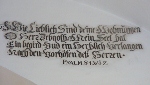 Wie Lieblich Sind deine Wohnungen
O Herr Zebaoth Mein Seel hat
Ein begird Und ein Hertzlich Verlangen
Nach den Vorhöfen deß Herren.
PSALM